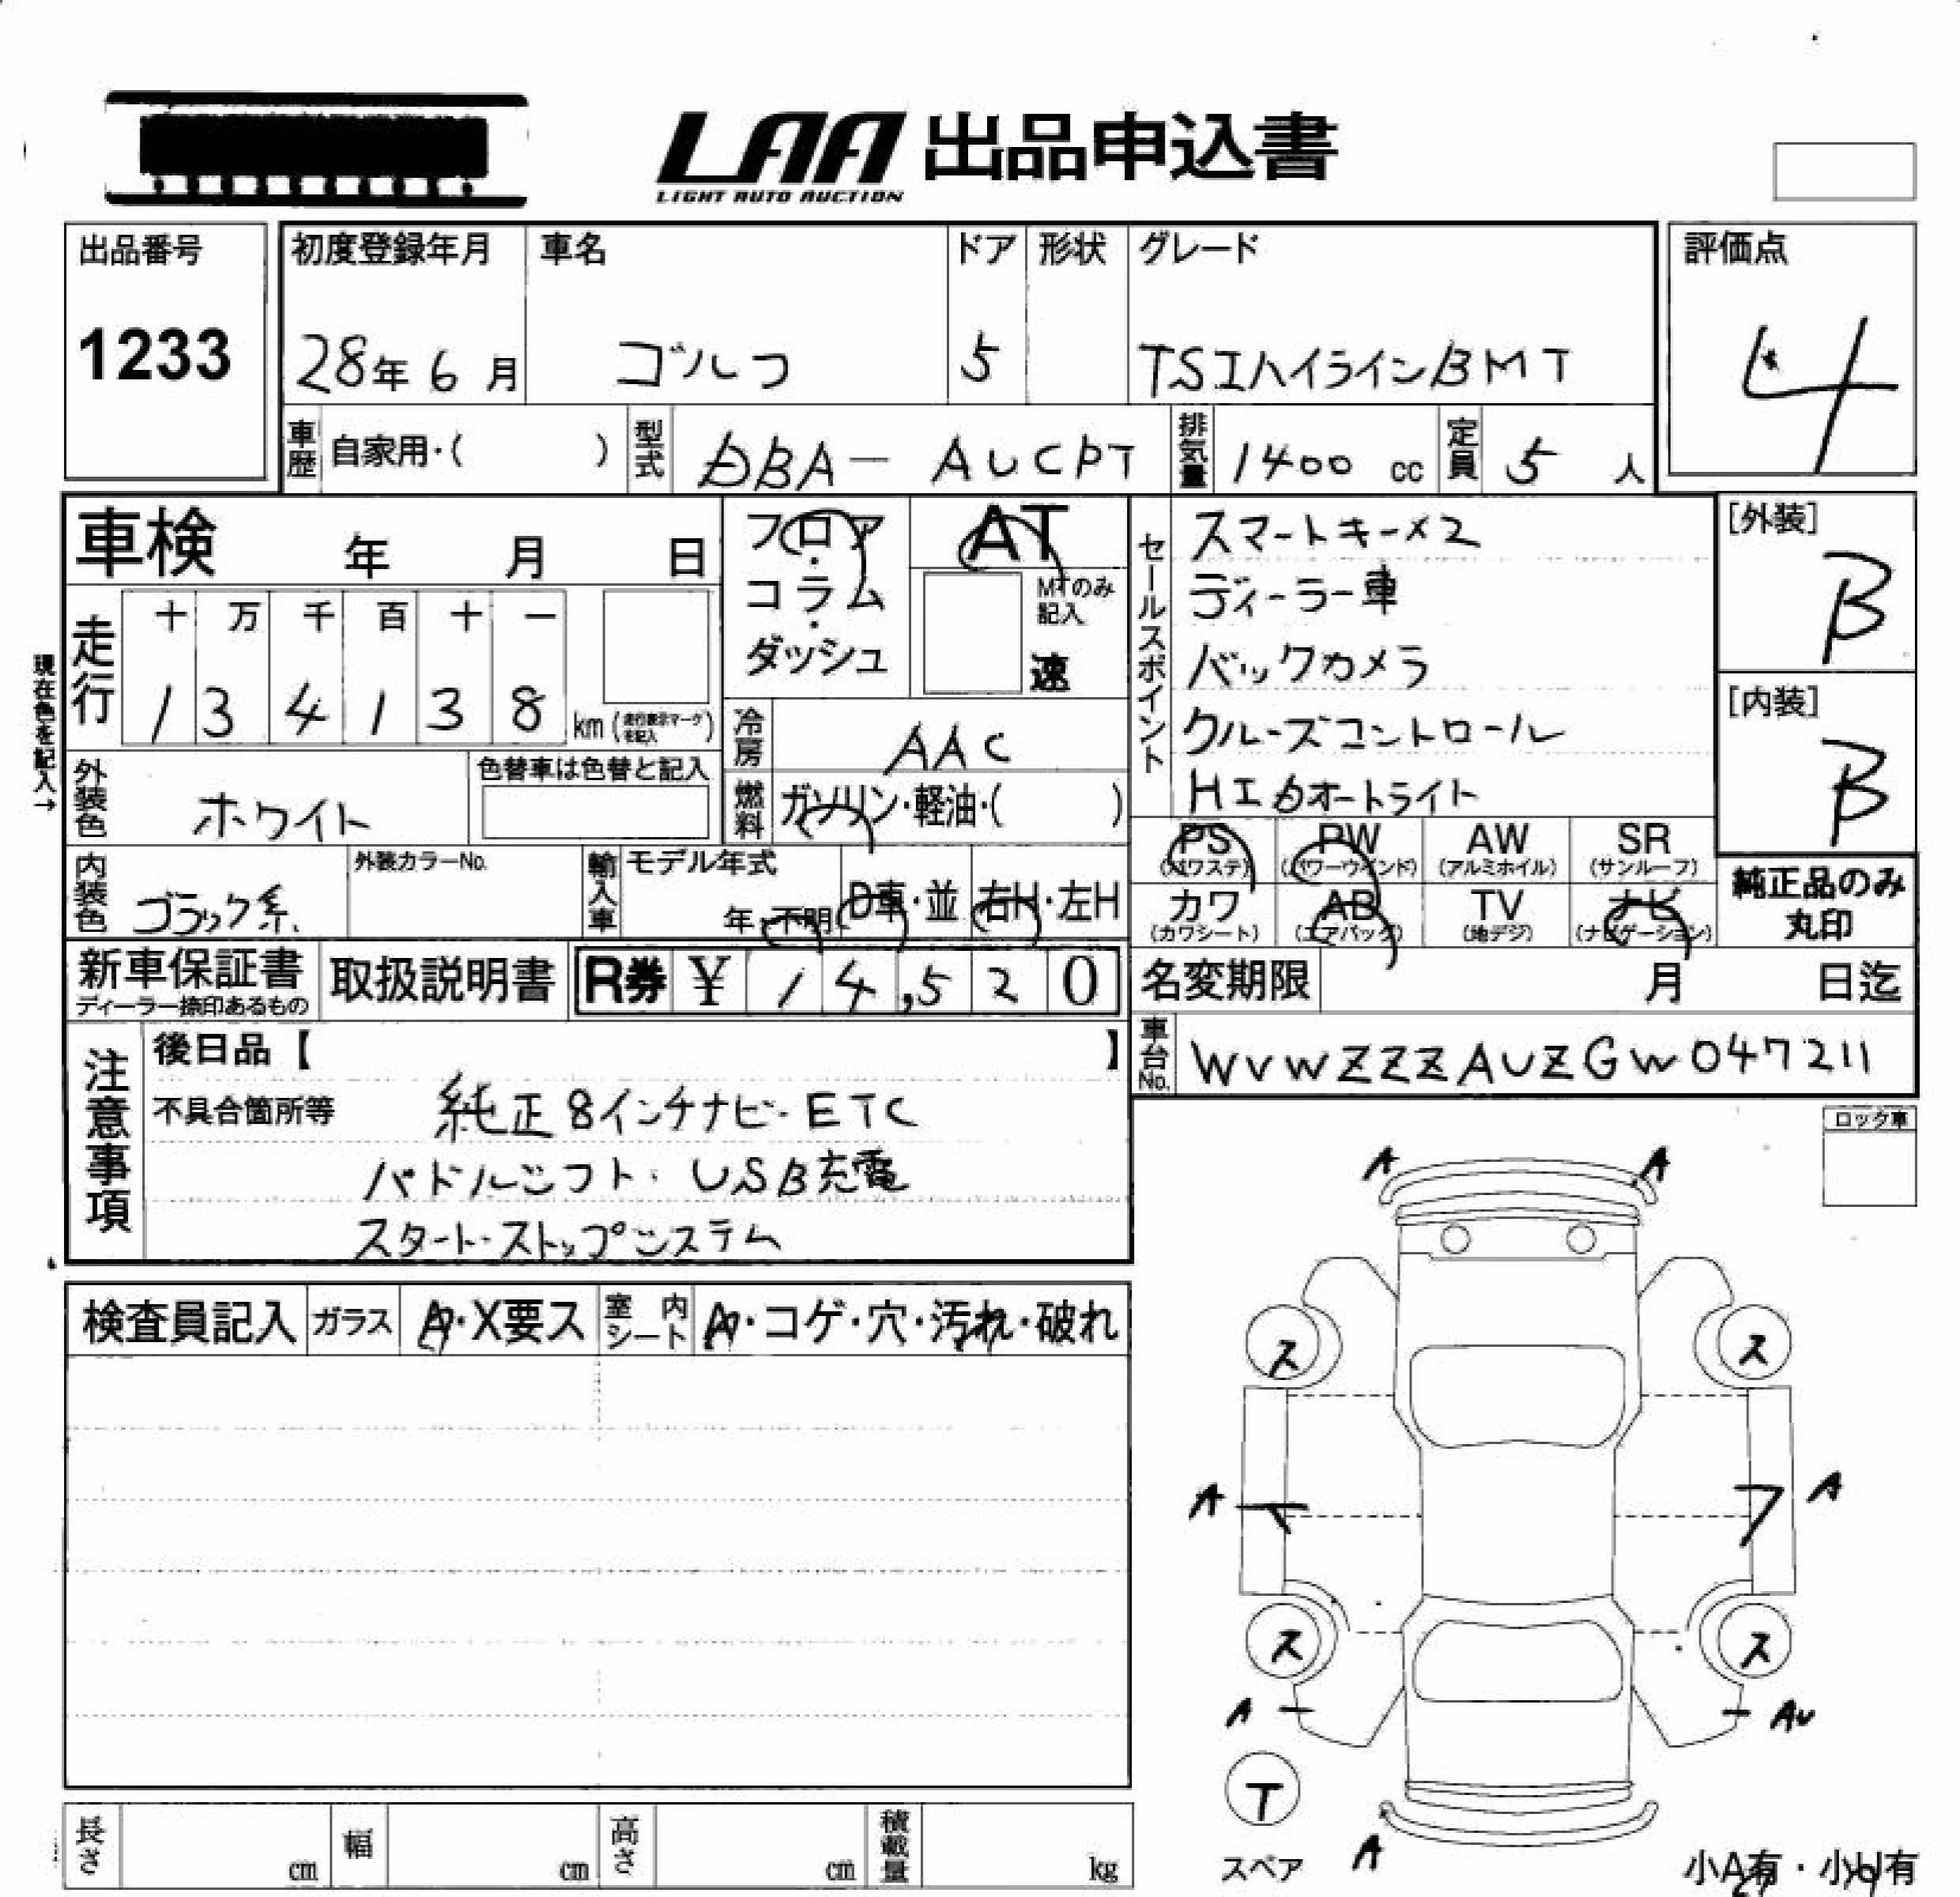 LAA 出品申込書
LIGHT AUTO AUCTION
出品番号
1233
初度登録年月
28年 6月
車名
ゴルフ
ドア
5
形状
グレード
TSIハイラインBMT
評価点
4
車歴 自家用・( )
型式 DBA-AUCPT
排気量 1400 cc
定員 5 人
車検 年 月 日
現在色を記入→
走行
十 万 千 百 十 一
1 3 4 1 3 8 km (走行表示マーク 未記入)
フロア・コラム・ダッシュ
AT
MTのみ記入
速
冷房 AAC
燃料 ガソリン・軽油・( )
外装色 ホワイト
色替車は色替と記入
内装色 ブラック系
外装カラーNo.
輸入車
モデル年式
年・不明
D車・並
右H・左H
セールスポイント
スマートキー×2
ディーラー車
バックカメラ
クルーズコントロール
HIDオートライト
[外装]
B
[内装]
B
PS (パワステ)
PW (パワーウインド)
AW (アルミホイル)
SR (サンルーフ)
カワ (カワシート)
AB (エアバック)
TV (地デジ)
ナビ (ナビゲーション)
純正品のみ丸印
新車保証書
ディーラー捺印あるもの
取扱説明書
R券 ¥ 14,520
名変期限 月 日迄
車台No. WVWZZZAUZGW047211
注意事項
後日品【 】
不具合箇所等
純正8インチナビ・ETC
パドルシフト・USB充電
スタート・ストップシステム
ロック車
検査員記入
ガラス A・X要ス
室内シート A・コゲ・穴・汚れ・破れ
A A
ス ス
A A
ス ス
A AU
T
スペア
A
小A有・小U有
長さ cm
幅 cm
高さ cm
積載量 kg